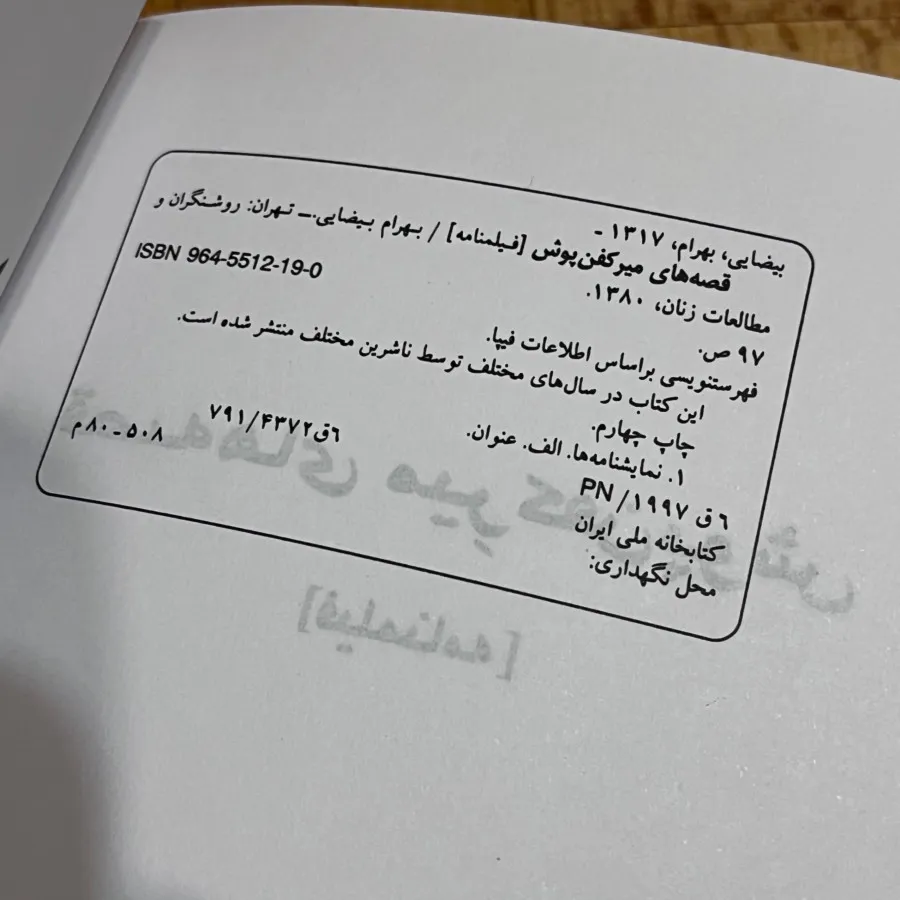 بیضایی، بهرام، ۱۳۱۷ -
قصه‌های میر کفن‌پوش [فیلمنامه] / بهرام بیضایی.ـ تهران: روشنگران و
مطالعات زنان، ۱۳۸۰.
۹۷ ص. ISBN 964-5512-19-0
فهرستنویسی براساس اطلاعات فیپا.
این کتاب در سال‌های مختلف توسط ناشرین مختلف منتشر شده است.
چاپ چهارم.
۱. نمایشنامه‌ها. الف. عنوان.
۶ ق ۱۹۹۷/ PN ۶ق۷۹۱/۴۳۷۲
کتابخانه ملی ایران ۵۰۸ـ۸۰م
محل نگهداری:
قصه‌های میرِ کفن‌پوش
[فیلمنامه]